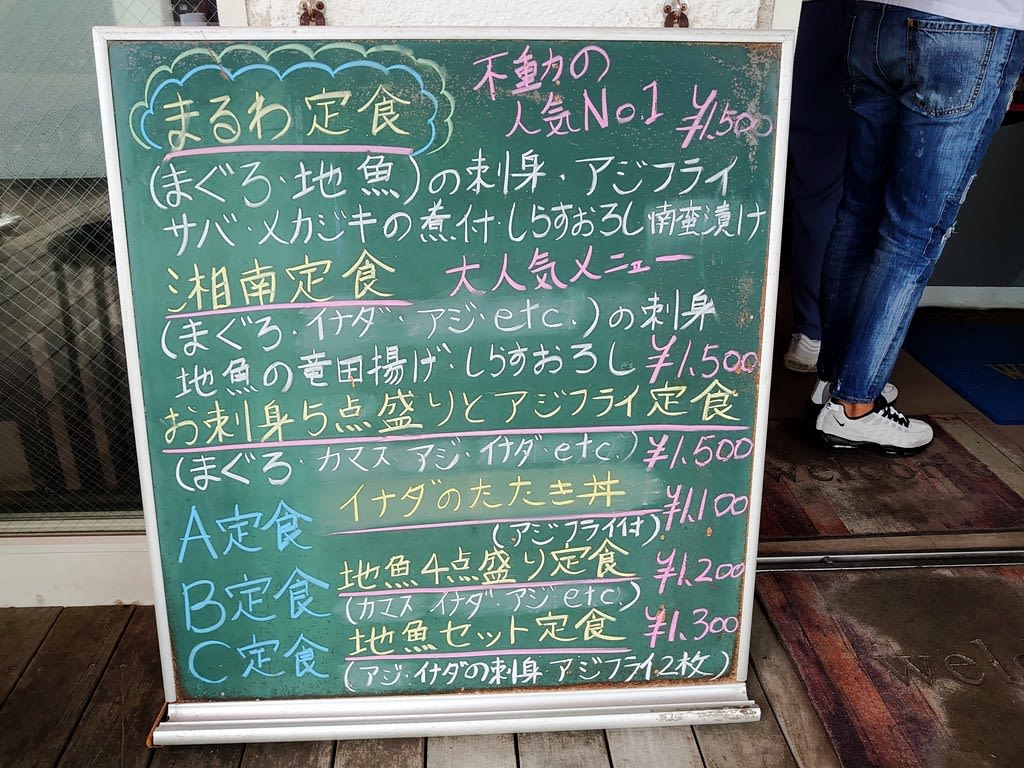 まるわ定食
不動の
人気No.1 ¥1.500
(まぐろ・地魚)の刺身・アジフライ
サバ・メカジキの煮付・しらすおろし 南蛮漬け
湘南定食 大人気メニュー
(まぐろ・イナダ・アジ・etc.)の刺身
地魚の竜田揚げ・しらすおろし ¥1.500
お刺身5点盛りとアジフライ定食
(まぐろ・カマス・アジ・イナダ etc.) ¥1.500
A定食 イナダのたたき丼 ¥1.100
(アジフライ付)
B定食 地魚4点盛り定食 ¥1.200
(カマス イナダ・アジ etc.)
C定食 地魚セット定食 ¥1.300
(アジ・イナダの刺身 アジフライ2枚)
welcome